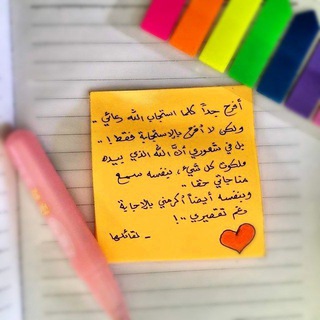 أفرح جداً كلما استجاب الله دعائي ..
ولكن لا أفرح بالاستجابة فقط ! ..
بل في شعوري أنَّ الله الذي بيده
ملكوت كل شيء ، بنفسه سمع
مناجاتي حقا ..
وبنفسه أيضاً أكرمني بالاجابة
رغم تقصيري ..!
- لقائلها